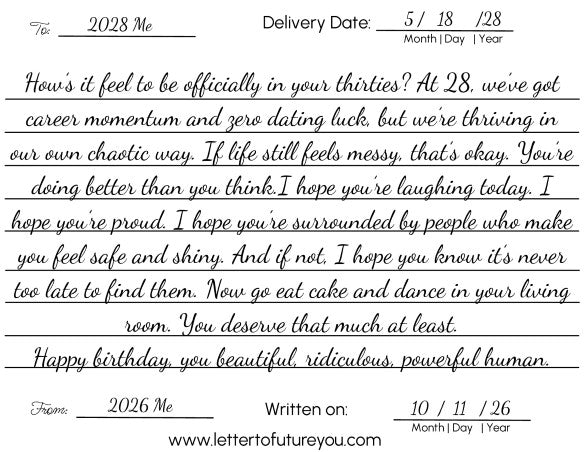 To: 2028 Me Delivery Date: 5 / 18 / 28
Month | Day | Year
How's it feel to be officially in your thirties? At 28, we've got
career momentum and zero dating luck, but we're thriving in
our own chaotic way. If life still feels messy, that's okay. You're
doing better than you think.I hope you're laughing today. I
hope you're proud. I hope you're surrounded by people who make
you feel safe and shiny. And if not, I hope you know it's never
too late to find them. Now go eat cake and dance in your living
room. You deserve that much at least.
Happy birthday, you beautiful, ridiculous, powerful human.
From: 2026 Me Written on: 10 / 11 / 26
Month | Day | Year
www.lettertofutureyou.com